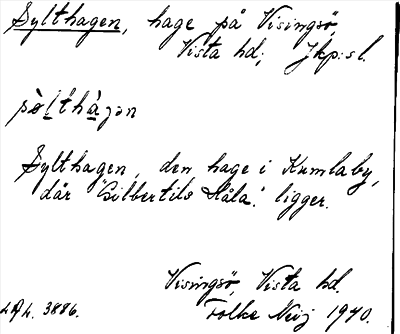 Sylthagen, hage på Visingsö,
Vista hd; Jkp:s l.
Sylthagen, den hage i Kumlaby,
där "Gilbertils Håla" ligger.
Visingsö, Vista hd.
Folke Neij 1940.
3886.